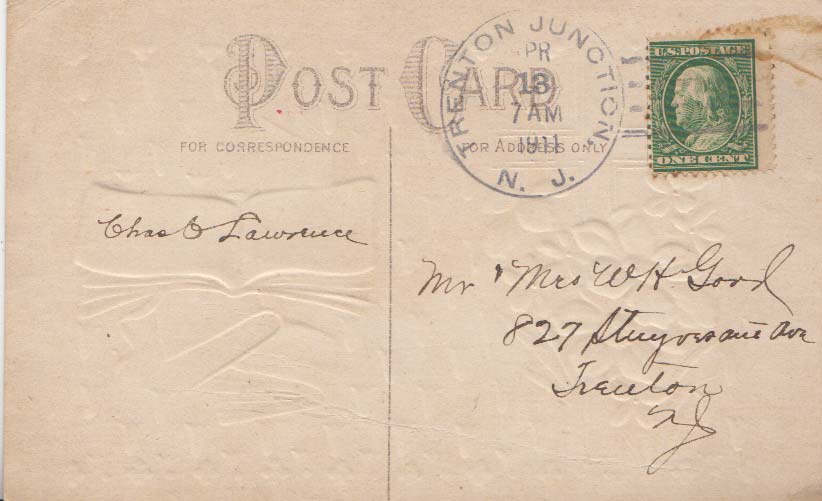 POST CARD
FOR CORRESPONDENCE
FOR ADDRESS ONLY
TRENTON JUNCTION,
PR
13
7 AM
1911
N. J.
U.S. POSTAGE
ONE CENT
Chas O Lawrence
Mr & Mrs W H Good
827 Stuyvesant Ave
Trenton
NJ